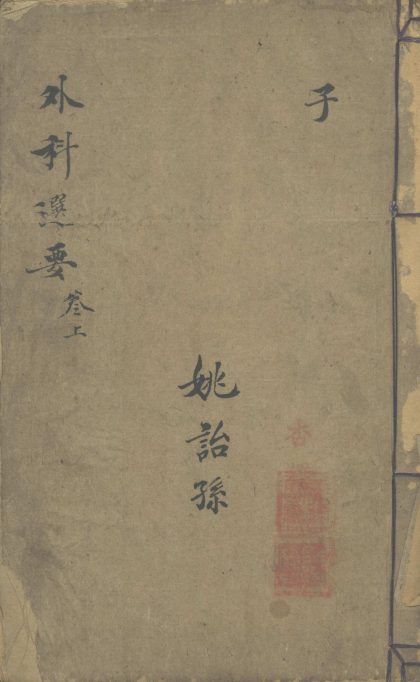 子
姚詒孫
外科選要
叄上